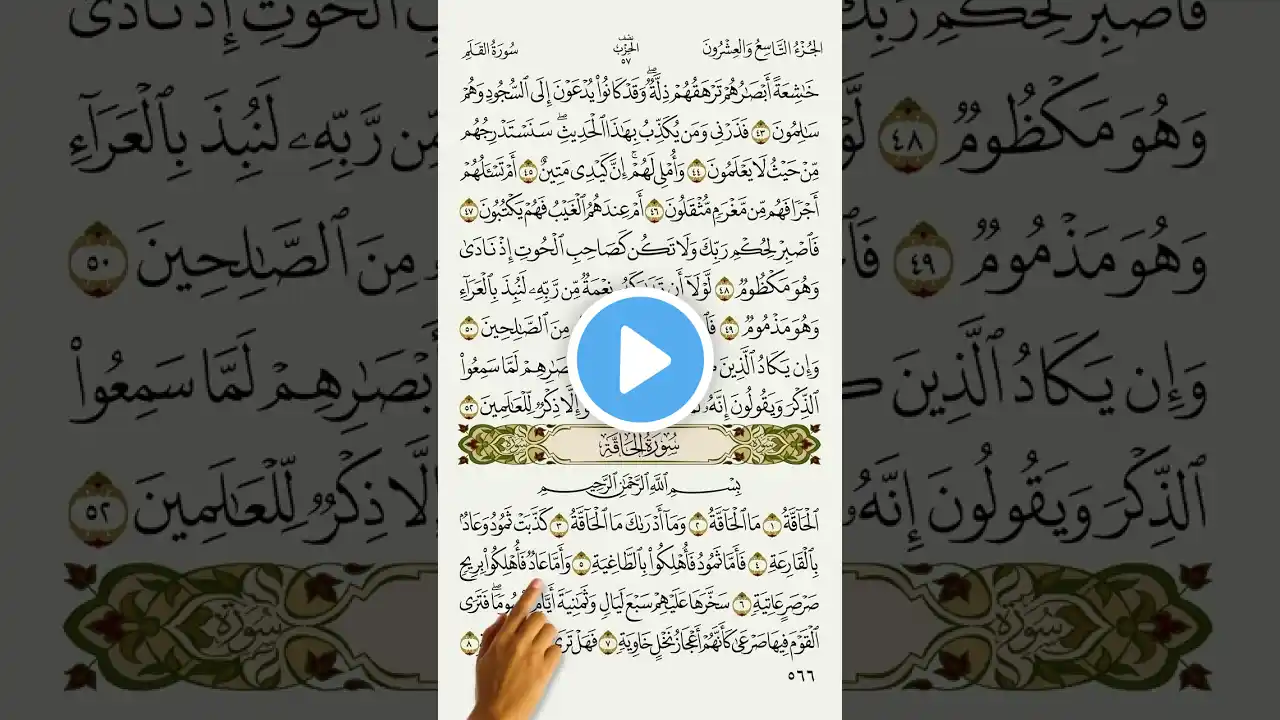 الجُزْءُ التَّاسِعُ وَالعِشْرُونَ
نصف الحِزْب ٥٧
سُورَةُ القَلَمِ
خَٰشِعَةً أَبْصَٰرُهُمْ تَرْهَقُهُمْ ذِلَّةٌۖ وَقَدْ كَانُوا۟ يُدْعَوْنَ إِلَى ٱلسُّجُودِ وَهُمْ
سَٰلِمُونَ ٤٣ فَذَرْنِى وَمَن يُكَذِّبُ بِهَٰذَا ٱلْحَدِيثِۖ سَنَسْتَدْرِجُهُم
مِّنْ حَيْثُ لَا يَعْلَمُونَ ٤٤ وَأُمْلِى لَهُمْۚ إِنَّ كَيْدِى مَتِينٌ ٤٥ أَمْ تَسْـَٔلُهُمْ
أَجْرًا فَهُم مِّن مَّغْرَمٍ مُّثْقَلُونَ ٤٦ أَمْ عِندَهُمُ ٱلْغَيْبُ فَهُمْ يَكْتُبُونَ ٤٧
فَٱصْبِرْ لِحُكْمِ رَبِّكَ وَلَا تَكُن كَصَاحِبِ ٱلْحُوتِ إِذْ نَادَىٰ
وَهُوَ مَكْظُومٌ ٤٨ لَّوْلَآ أَن نِعْمَةٌ مِّن رَّبِّهِۦ لَنُبِذَ بِٱلْعَرَآءِ
وَهُوَ مَذْمُومٌ ٤٩ مِنَ ٱلصَّٰلِحِينَ ٥٠
وَإِن يَكَادُ ٱلَّذِينَ لَمَّا سَمِعُوا۟
ٱلذِّكْرَ وَيَقُولُونَ إِنَّهُۥ إِلَّا ذِكْرٌ لِّلْعَٰلَمِينَ ٥٢
سُورَةُ الحَاقَّةِ
بِسْمِ ٱللَّهِ ٱلرَّحْمَٰنِ ٱلرَّحِيمِ
ٱلْحَآقَّةُ ١ مَا ٱلْحَآقَّةُ ٢ وَمَآ أَدْرَىٰكَ مَا ٱلْحَآقَّةُ ٣ كَذَّبَتْ ثَمُودُ وَعَادٌۢ
بِٱلْقَارِعَةِ ٤ فَأَمَّا ثَمُودُ فَأُهْلِكُوا۟ بِٱلطَّاغِيَةِ ٥ وَأَمَّا عَادٌ فَأُهْلِكُوا۟ بِرِيحٍ
صَرْصَرٍ عَاتِيَةٍ ٦ سَخَّرَهَا عَلَيْهِمْ سَبْعَ لَيَالٍ وَثَمَٰنِيَةَ أَيَّامٍ حُسُومًاۖ فَتَرَى
ٱلْقَوْمَ فِيهَا صَرْعَىٰ كَأَنَّهُمْ أَعْجَازُ نَخْلٍ خَاوِيَةٍ ٧ فَهَلْ تَرَىٰ ٨
٥٦٦